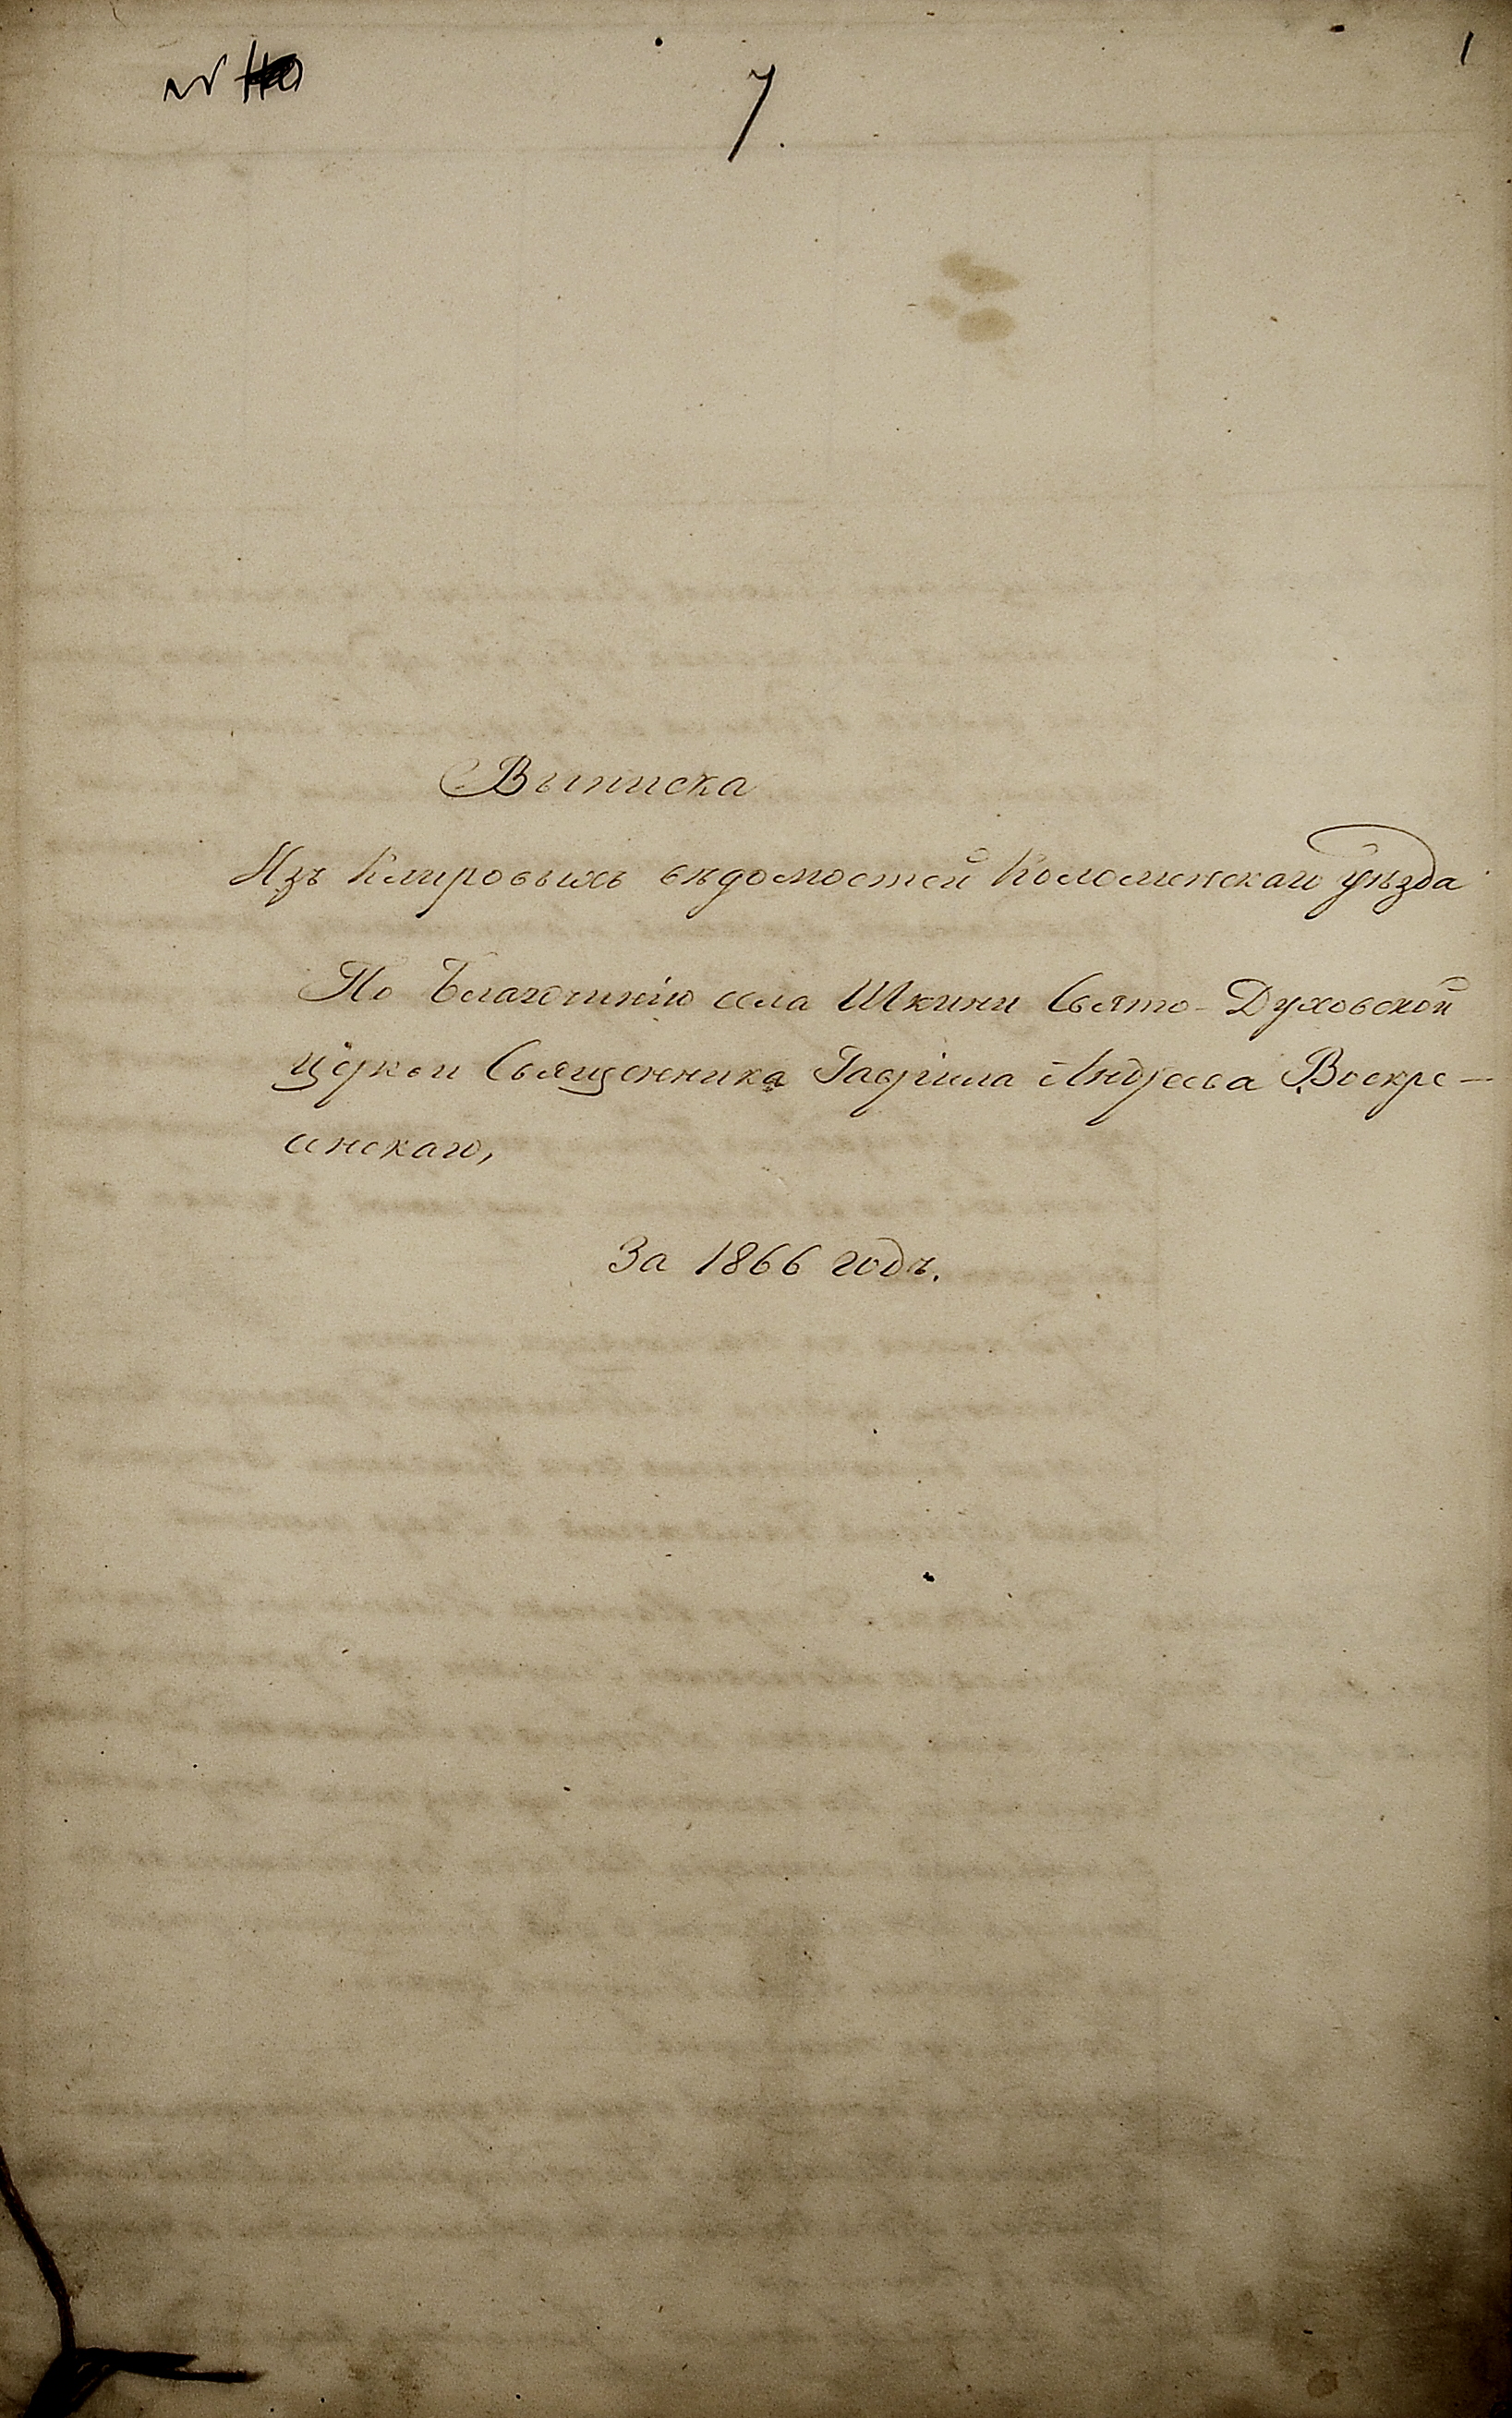 7.
1
Выписка
Изъ Клировыхъ вѣдомостей Коломенскаго уѣзда
По Благочинію села Шкини Свято-Духовской
церкви Священника Гавріила Андреева Воскре-
сенскаго,
За 1866 годъ.